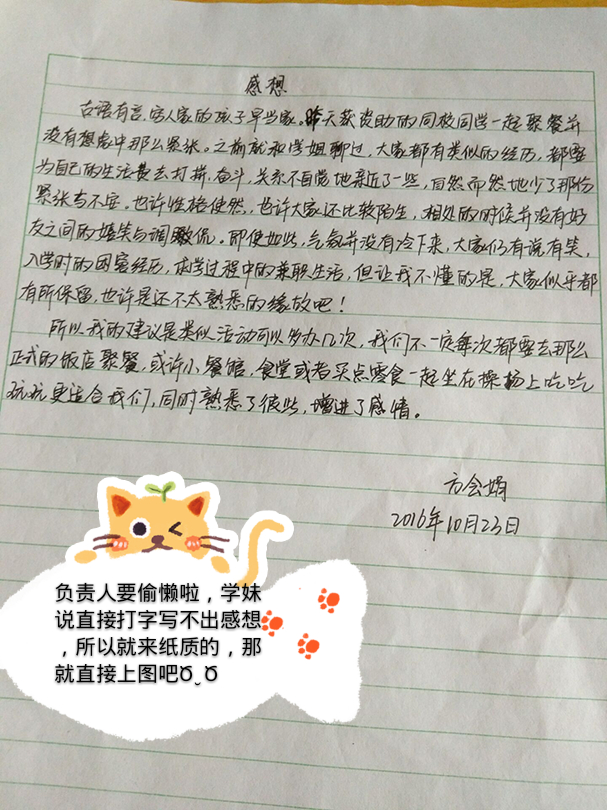 感想
古语有言,穷人家的孩子早当家。昨天获资助的同校同学一起聚餐并
没有想象中那么紧张。之前就和学姐聊过,大家都有类似的经历,都要
为自己的生活费去打拼、奋斗,关系不自觉地亲近了一些,自然而然地少了那份
紧张与不安。也许性格使然,也许大家还比较陌生,相处的时候并没有好
友之间的嬉笑与调侃。即使如此,气氛并没有冷下来,大家们有说有笑,
入学时的困窘经历,求学过程中的兼职生活,但让我不懂的是,大家似乎都
有所保留,也许是还不太熟悉的缘故吧!
所以我的建议是类似活动可以多办几次,我们不一定每次都要去那么
正式的饭店聚餐,或许小餐馆、食堂或者买点零食一起坐在操场上吃吃
玩玩更适合我们,同时熟悉了彼此,增进了感情。
方会娟
2016年10月23日
负责人要偷懒啦,学妹
说直接打字写不出感想
,所以就来纸质的,那
就直接上图吧Ծ‸Ծ